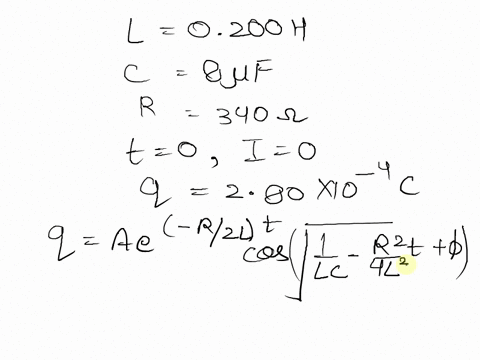 L = 0.200H
C = 8μF
R = 340Ω
t=0, I=0
q = 2.80 X10^-4 C
q = Ae^(-R/2L)t cos(√(1/LC - R²/4L² t + ϕ)